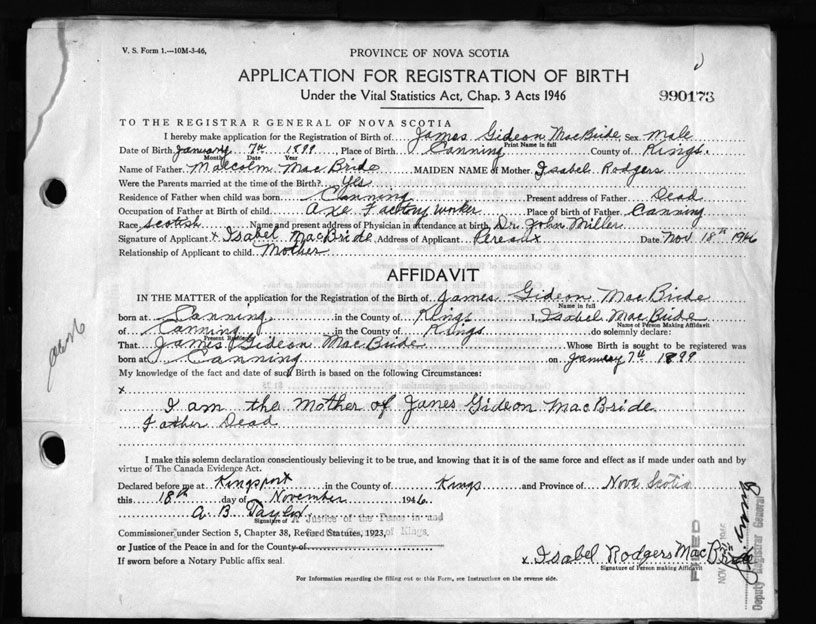 V. S. Form 1.—10M-3-46,
PROVINCE OF NOVA SCOTIA
APPLICATION FOR REGISTRATION OF BIRTH
Under the Vital Statistics Act, Chap. 3 Acts 1946
990173
TO THE REGISTRAR GENERAL OF NOVA SCOTIA
I hereby make application for the Registration of Birth of James Gideon MacBride Sex Male
Print Name in full
Date of Birth January 7th 1899 Place of Birth Canning County of Kings.
Month Date Year
Name of Father Malcolm MacBride MAIDEN NAME of Mother Isabel Rodgers
Were the Parents married at the time of the Birth? Yes
Residence of Father when child was born Canning Present address of Father Dead
Occupation of Father at Birth of child Axe Factory worker Place of birth of Father Canning
Race Scotish Name and present address of Physician in attendance at birth Dr John Miller
Signature of Applicant x Isabel MacBride Address of Applicant Pereaux Date Nov 18th 1946
Relationship of Applicant to child Mother
AFFIDAVIT
IN THE MATTER of the application for the Registration of the Birth of James Gideon MacBride
Name in full
born at Canning in the County of Kings I, Isabel MacBride
Name of Person Making Affidavit
of Canning in the County of Kings do solemnly declare:
Present Residence
That James Gideon MacBride Whose Birth is sought to be registered was
born at Canning on January 7th 1899
My knowledge of the fact and date of such Birth is based on the following Circumstances:
x
I am the Mother of James Gideon MacBride
Father Dead
I make this solemn declaration conscientiously believing it to be true, and knowing that it is of the same force and effect as if made under oath and by
virtue of The Canada Evidence Act.
Declared before me at Kingsport in the County of Kings and Province of Nova Scotia
this 18th day of November 1946
A B Taylor
Signature of A Justice of the Peace in and
Commissioner under Section 5, Chapter 38, Revised Statutes, 1923, of Kings
or Justice of the Peace in and for the County of
If sworn before a Notary Public affix seal.
x Isabel Rodgers MacBride
Signature of Person making Affidavit
For Information regarding the filling out of this Form, see Instructions on the reverse side.
FILED
Deputy Registrar General